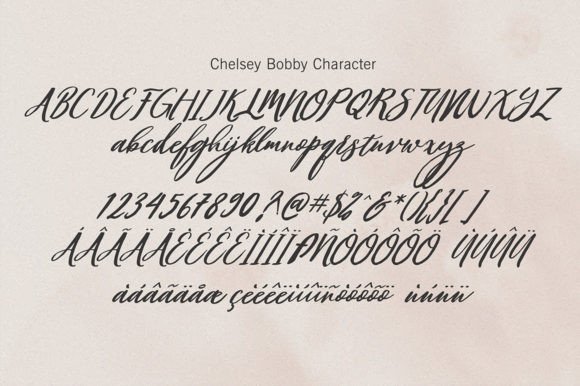 Chelsey Bobby Character
ABCDEFGHIJKLMNOPQRSTUVWXYZ
abcdefghijklmnopqrstuvwxyz
1234567890?@#$%^&*(){}[]
ÁÂÃÄÅÈÉÊËÌÍÎÏÑÒÓÔÕÖ ÙÚÛÜ
àáâãäåæ çèéêëìíîïñòóôõö ùúûü